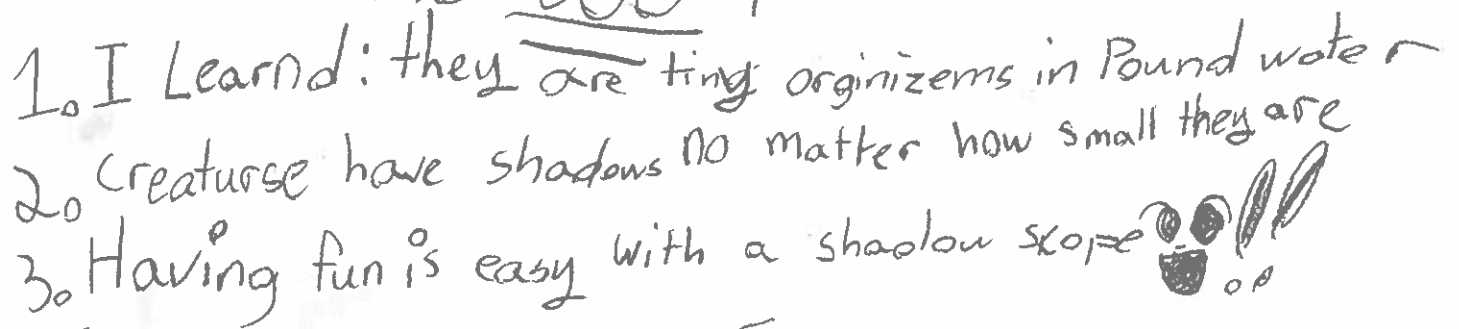 1. I Learnd: they are ting orginizems in Pound woter
2. Creaturse have shadows no matter how small they are
3. Having fun is easy with a shadow scope!!